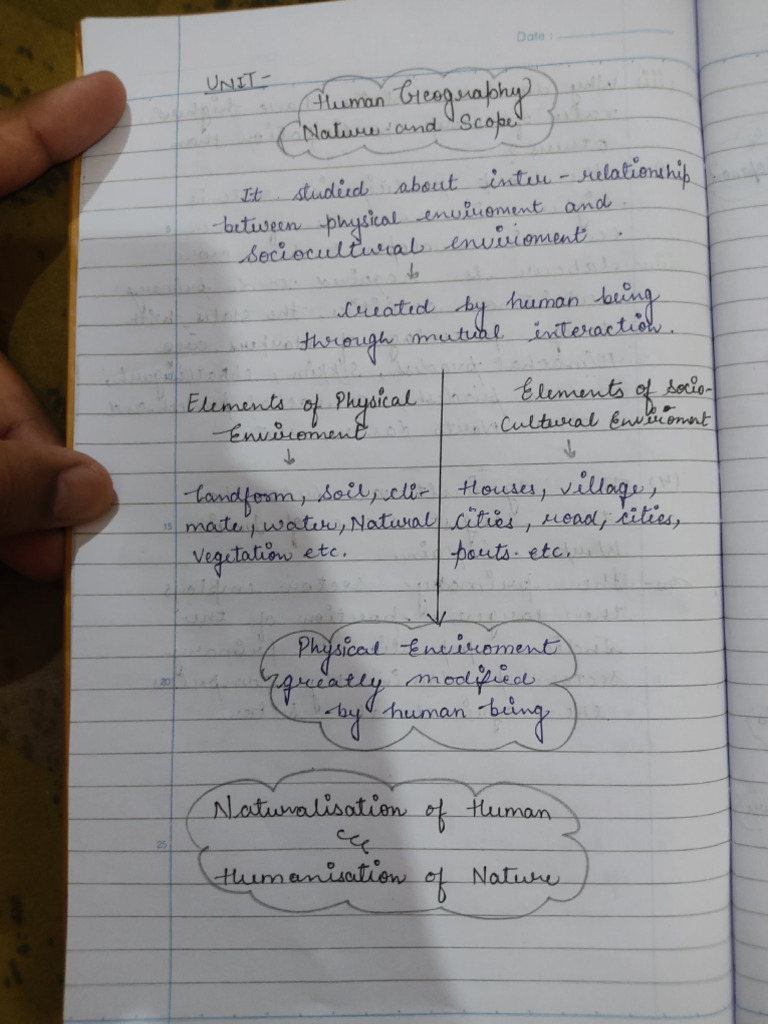 Date :
UNIT-
Human Geography
Nature and Scope
It studied about inter - relationship
between physical enviroment and
sociocultural enviroment.
Created by human being
through mutual interaction.
Elements of Physical
Enviroment
Landform, Soil, cli-
mate, water, Natural
vegetation etc.
Elements of Socio-
Cultural Enviroment
Houses, village,
cities, road, cities,
ports. etc.
Physical Enviroment
greatly modified
by human being
Naturalisation of Human
Humanisation of Nature
10
15
20
25